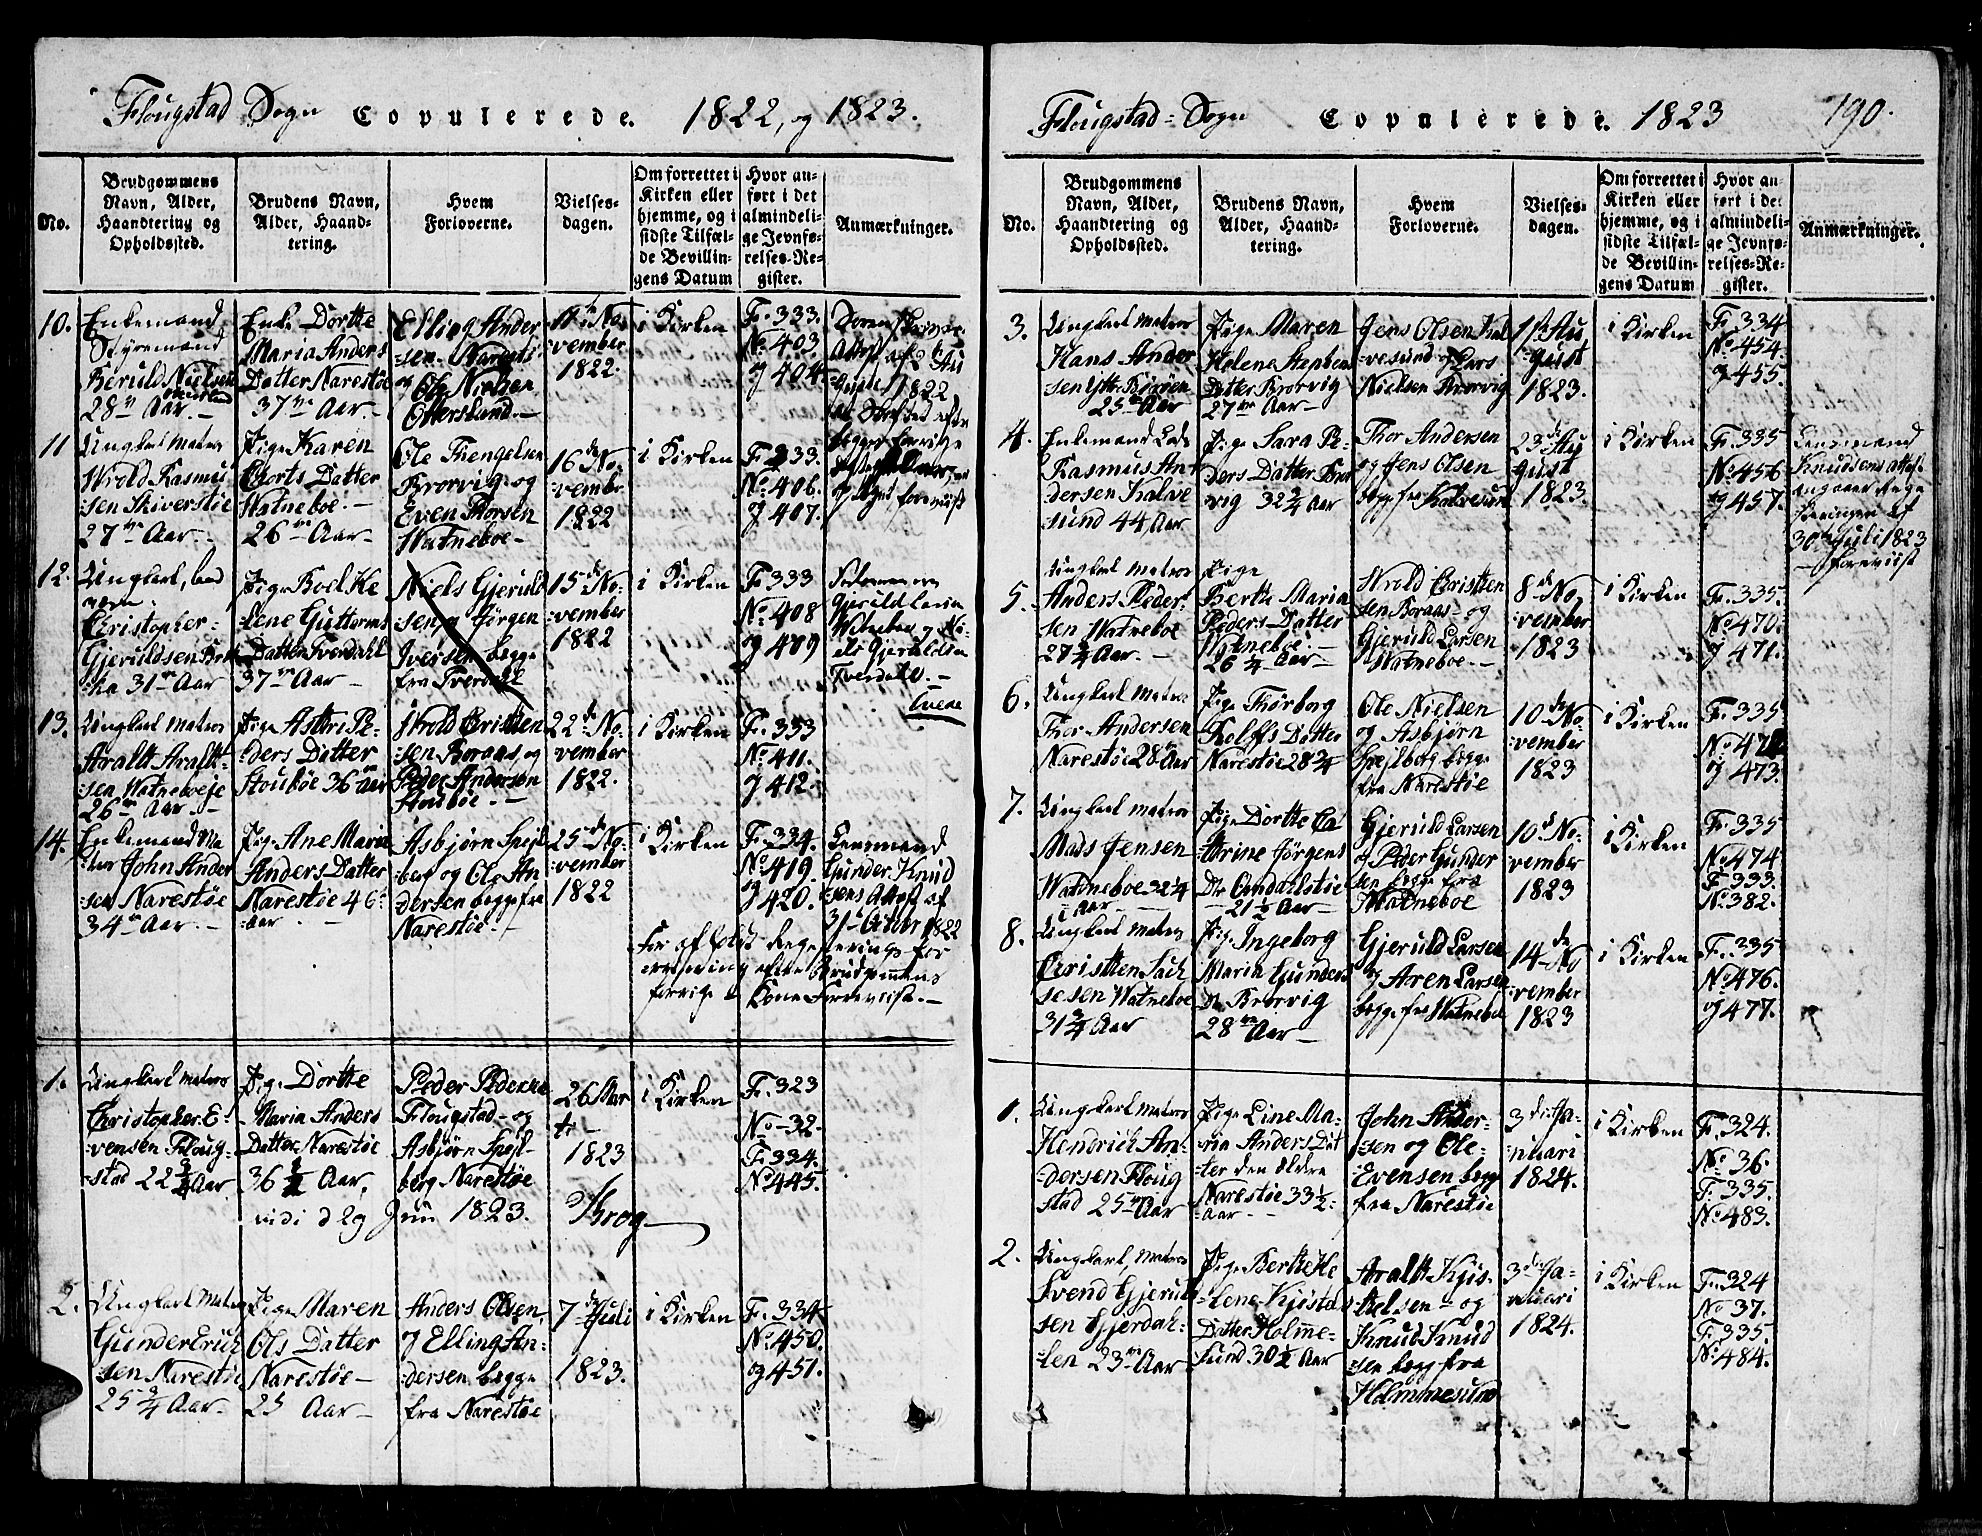 Flougstad Sogn Copulerede. 1822, og 1823.
No.
Brudgommens
Navn, Alder,
Haandtering og
Opholdssted.
Brudens Navn,
Alder, Haand-
tering.
Hvem
Forloverne.
Vielses-
dagen.
Om forrettet i
Kirken eller
hjemme, og i
sidste Tilfæl-
de Bevillin-
gens Datum
Hvor an-
ført i det
almindeli-
ge Jevnfø-
relses-Re-
gister.
Anmærkninger.
10.
Enkemand
Styremand
Beruld Nielsen
28 Aar.
Enke Dortte
Maria Anders
Datter Narestøe
37 Aar
Elling Ander
sen Narestø
og Ole Nielsen
Otterslund.
11 No
vember
1822.
i Kirken
F. 333.
No. 403
og 404
11
Ungkarl Matros
Wrold Rasmus
sen Skiverstøe
27 Aar
Pige Karen
Datter
Watneboe.
26 Aar
Ole Thengelsen
Brorvig og
Even Thorsen
Watneboe
16 de No
vember
1822
i Kirken
F. 333.
No. 406.
og 407.
12.
Ungkarl,
Christopher
Gjeruldsen
31 Aar
Pige Boel He
lene Guttorms
Datter Tverdahl
37 Aar
Niels Gjeruld
sen og Jørgen
Iversen begge
fra Tverdahl
15 de No
vember
1822
i Kirken
F. 333
No. 408
og 409
13.
Ungkarl Matros
Aralt Aralt-
sen Watneveje
26 Aar
Pige Asttri Pe-
ders Datter
Stouböe 36 Aar
Wrold Christten
sen Boraas og
Peder Andersen
Stouböe.
22 de No
vember
1822.
i Kirken
F. 333
No. 411.
og 412.
14.
Enkemand Ma
tros John Ander
sen Narestøe
34 Aar.
Pige Ane Maria
Anders Datter
Narestøe 46
Aar
Asbjørn Spejl
berg og Ole An
dersen begge fra
Narestøe
25 de No
vember
1822
i Kirken
F. 334.
No. 419.
og 420.
Lensmand
Gunder Knud
sens Attest af
31 October 1822
1.
Ungkarl Matros
Christopher E-
vensen Floug-
stad 22 3/4 Aar
Pige Dortte
Maria Anders
Datter Narestøe
36 1/2 Aar
Peder Pedersen
Flougstad og
Asbjørn Spejl-
berg Narestøe
26 Mar
ts
1823
i Kirken
F. 323
No. 32.
F. 334.
No. 445.
vidi d 29 Juni 1823. Krog
2.
Ungkarl Matros
Gunder Erich
sen Narestøe
25 3/4 Aar
Pige Maren
Ols Datter
Narestøe
25 Aar
Anders Olsen
og Elling An-
dersen begge
fra Narestøe
7 de Juli
1823.
i Kirken
F. 334
No. 450.
og 451.
Flougstad Sogn Copulerede. 1823 190.
No.
Brudgommens
Navn, Alder,
Haandtering og
Opholdssted.
Brudens Navn,
Alder, Haand-
tering.
Hvem
Forloverne.
Vielses-
dagen.
Om forrettet i
Kirken eller
hjemme, og i
sidste Tilfæl-
de Bevillin-
gens Datum
Hvor an-
ført i det
almindeli-
ge Jevnfø-
relses-Re-
gister.
Anmærkninger.
3.
Ungkarl Matros
Hans Ander
sen
25 Aar
Pige Maren
Helene Stephens
Datter Brorvig
27 Aar
Jens Olsen Kal
vesund og Lars
Nielsen Brorvig
1ste Au
gust
1823.
i Kirken
F. 334
No. 454.
og 455.
4.
Enkemand Lods
Rasmus An
dersen Kalve
sund 44 Aar
Pige Sara Pe-
ders Datter Bror
vig 32 3/4 Aar
Thor Andersen
og Jens Olsen
begge fra Kalvesund
23 de Au
gust
1823.
i Kirken
F. 335
No. 456
og 457.
Lensmand
Knudsens Attest
30 Juli 1823
foreviist
5.
Ungkarl Matros
Anders Peder-
sen Watneboe
27 3/4 Aar.
Pige
Berthe Maria
Peders Datter
Watneboe.
26 3/4 Aar
Wrold Christten
sen Boraas og
Gjeruld Larsen
Watneboe.
8 de No
vember
1823
i Kirken
F. 335.
No. 470.
og 471.
6.
Ungkarl Matros
Thor Andersen
Narestöe 28 Aar
Pige Thørborg
Rolffs Datter
Narestöe 28 3/4
Ole Nielsen
og Asbjørn
Spejlberg begge
fra Narestöe
10 de No
vember
1823
i Kirken
F. 335
No. 472
og 473.
7.
Ungkarl Matros
Mads Jensen
Watneboe 32 1/4
Aar
Pige Dortte Ca
thrine Jörgens
Dtr
21 1/2 Aar
Gjeruld Larsen
og Peder Gunder
sen begge fra
Watneboe
10 de No
vember
1823
i Kirken
F. 335
No. 474
F. 333.
No. 382.
8.
Ungkarl Matros
Christten Sach
sesen Watneboe
31 3/4 Aar
Pige Ingeborg
Maria Gunders
Dtr Brorvig
28 Aar
Gjeruld Larsen
og Aren Larsen
begge fra Watneboe
14 de No
vember
1823
i Kirken
F. 335
No. 476.
og 477.
1.
Ungkarl Matros
Hendrich An-
dersen Floug
stad 25 Aar
Pige Line Ma-
ria Anders Dat
ter den Eldre
Narestöe 33 1/2
Aar
John Ander-
sen og Ole
Evensen begge
fra Narestöe
3 de Ja-
nuari
1824.
i Kirken
F. 324.
No. 36.
F. 335.
No. 483.
2.
Ungkarl Matros
Svend Gjerul
sen Gjerdal-
len 23 Aar
Pige Berthe He
lene Kjösta
Datter Holme-
sund 30 1/2 Aar
Aralt Kjös-
telsen og
Knud Knud
sen begge fra
Holmmesund
3 de Ja-
nuari
1824.
i Kirken
F. 324
No. 37.
F. 335.
No. 484.